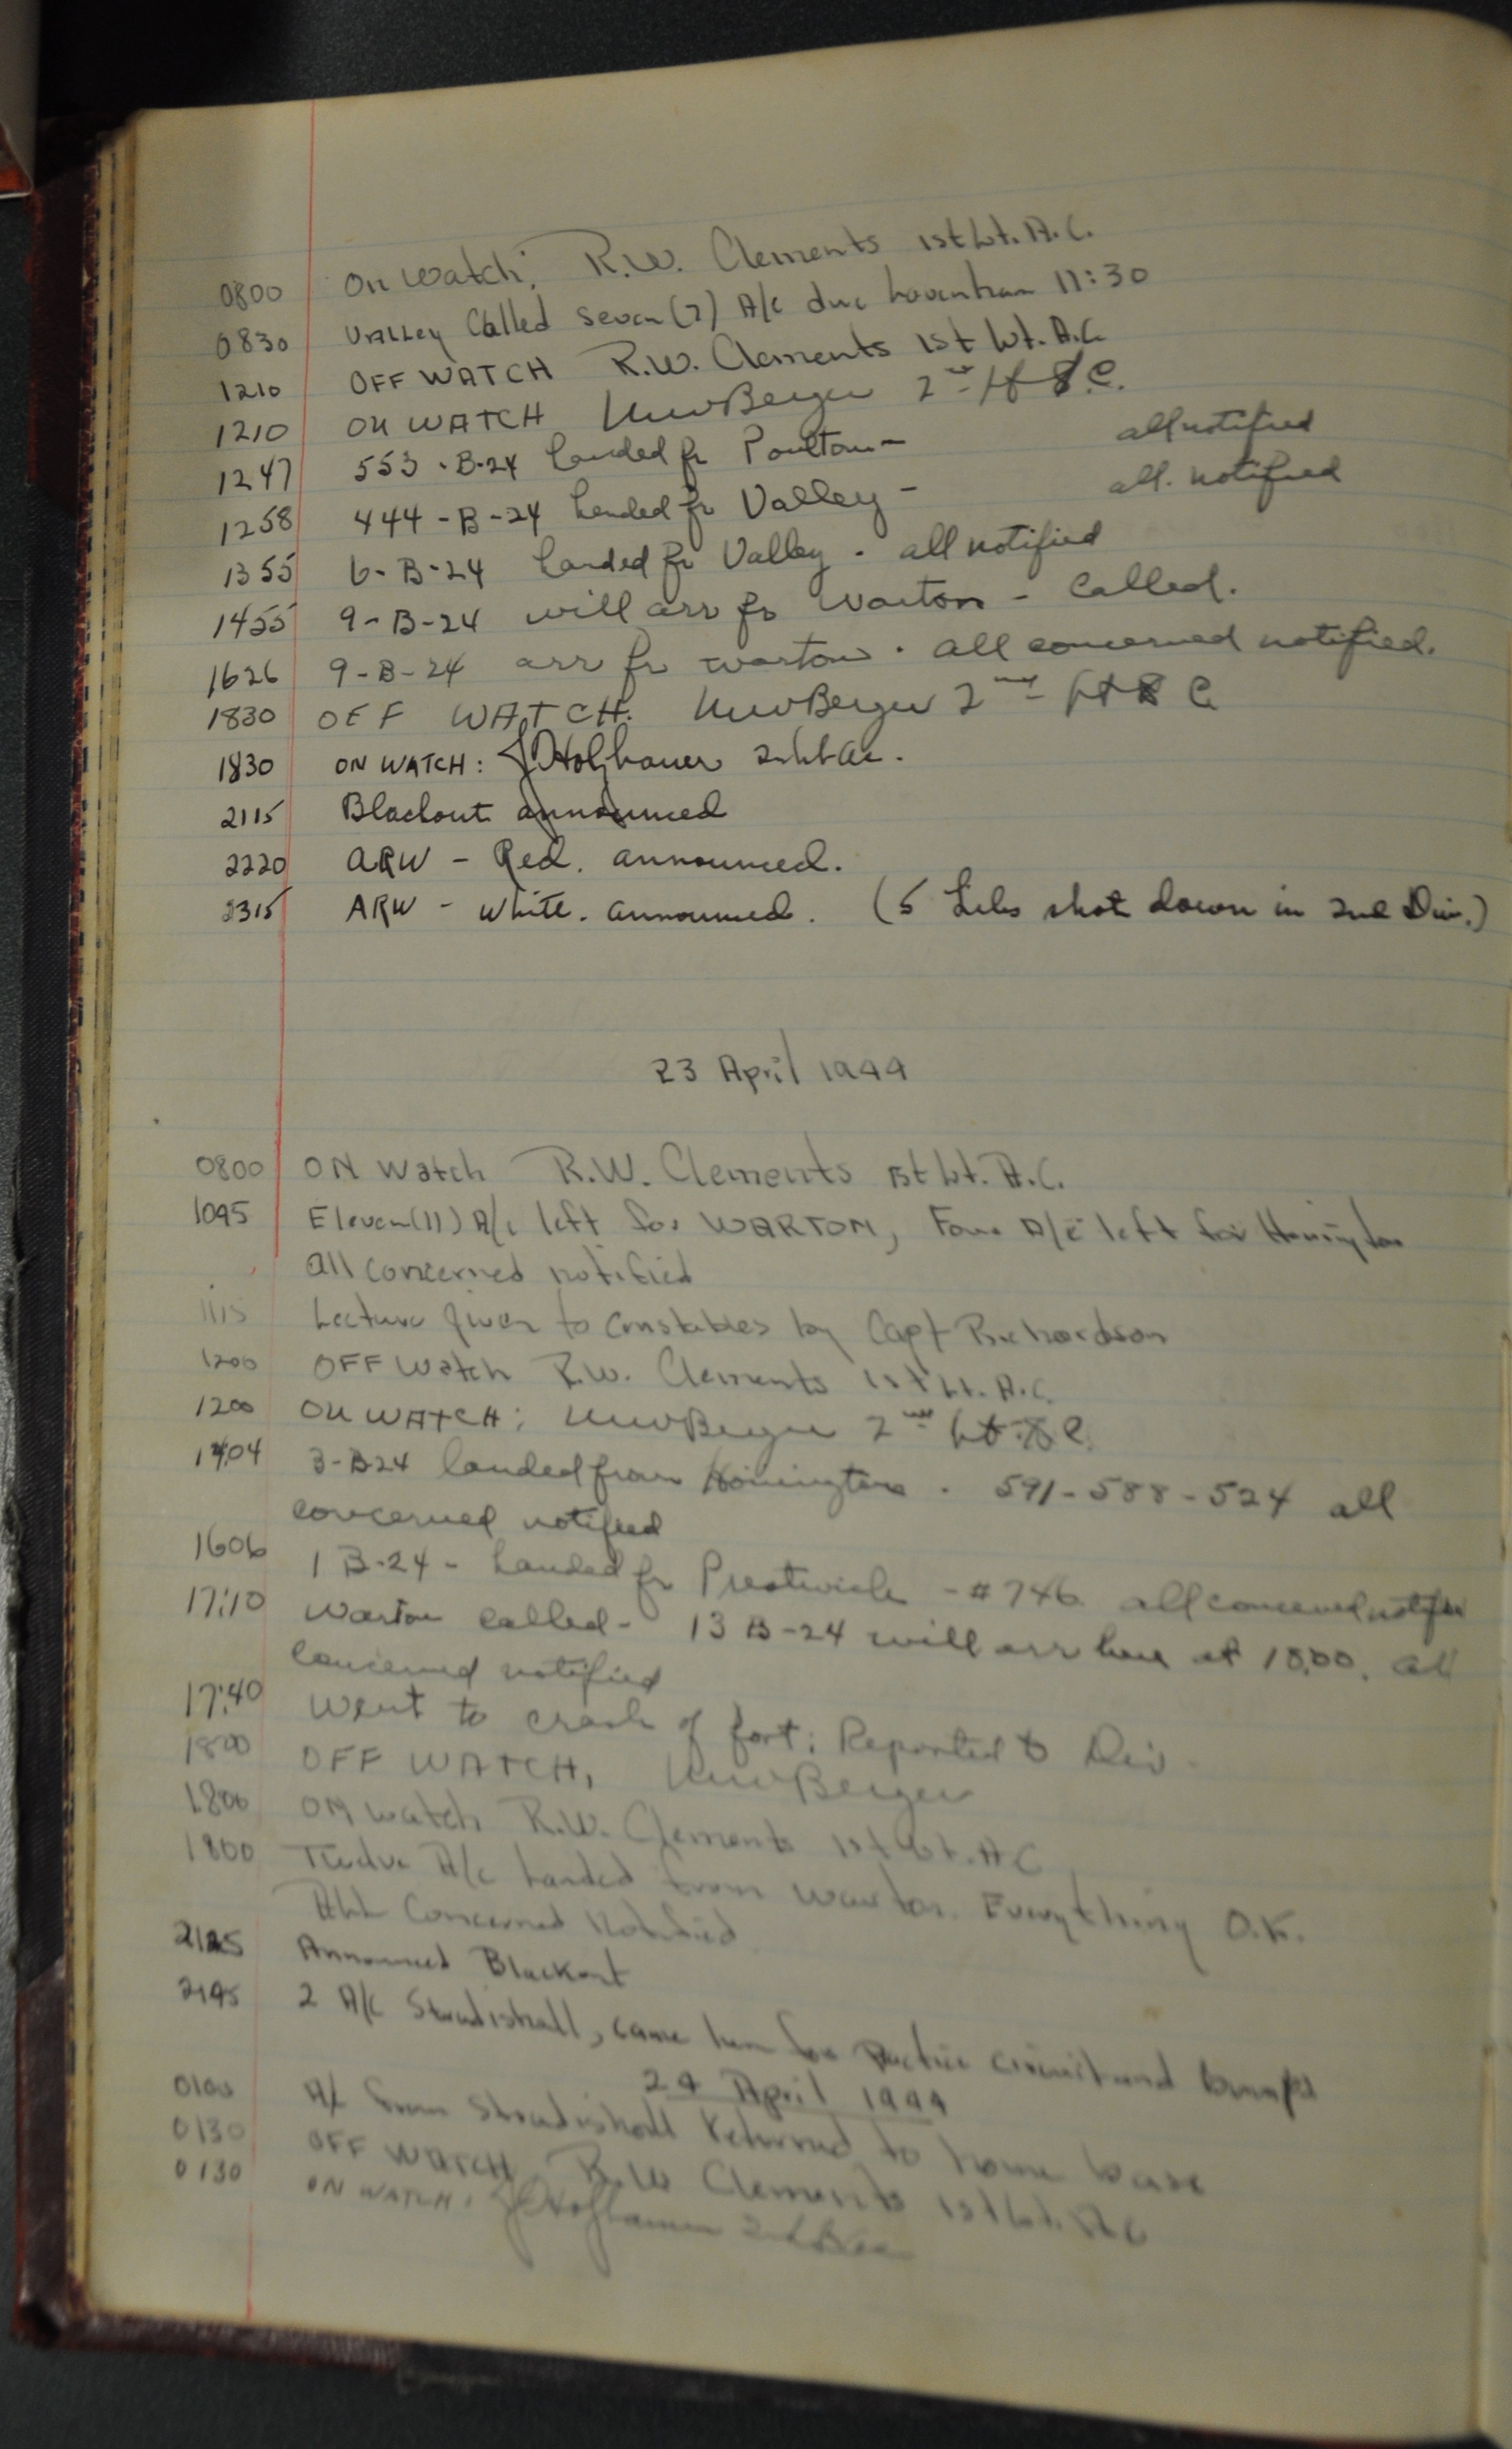 0800 On Watch: R.W. Clements 1st Lt. A.C.
0830 Valley Called seven (7) A/c due 11:30
1210 OFF WATCH R.W. Clements 1st Lt. A.C.
1210 ON WATCH Berger 2nd Lt
1247 553 - B-24 landed fr Poulton - all notified
1258 444 - B-24 landed fr Valley - all. notified
1355 6- B-24 landed fr Valley. all notified
1455 9- B-24 will arr fr Warton - called.
1626 9-B-24 arr fr warton. all concerned notified.
1830 OFF WATCH. Berger 2nd Lt
1830 ON WATCH: J Holzhauer 2nd Lt AC.
2115 Blackout announced
2220 ARW - Red. announced.
2315 ARW - White. announced. (5 Libs shot down in 2nd Div.)
23 April 1944
0800 ON Watch R.W. Clements 1st Lt. A.C.
1045 Eleven (11) A/c left for WARTON, Four A/c left for Honington
All concerned notified
1115 Lecture given to Constables by Capt Richardson
1200 OFF Watch R.W. Clements 1st Lt. A.C.
1200 ON WATCH: Berger 2nd Lt
1404 3-B24 landed from Honington. 591-588-524 all
concerned notified
1606 1 B-24 - Landed fr Prestwick - #746. all concerned notified
17:10 Warton called - 13 B-24 will arr here at 1800. all
concerned notified
17:40 Went to crash of fort; Reported to Div.
1800 OFF WATCH, Berger
1800 ON watch R.W. Clements 1st Lt. A.C
1800 Twelve A/c landed from Warton. Everything O.K.
All Concerned Notified
2125 Announced Blackout
2145 2 A/c Stradishall, came here for practice circuit and bumps
24 April 1944
0100 A/c from Stradishall Returned to home base
0130 OFF WATCH R.W Clements 1st Lt. A.C
0130 ON WATCH: J Holzhauer 2nd Lt